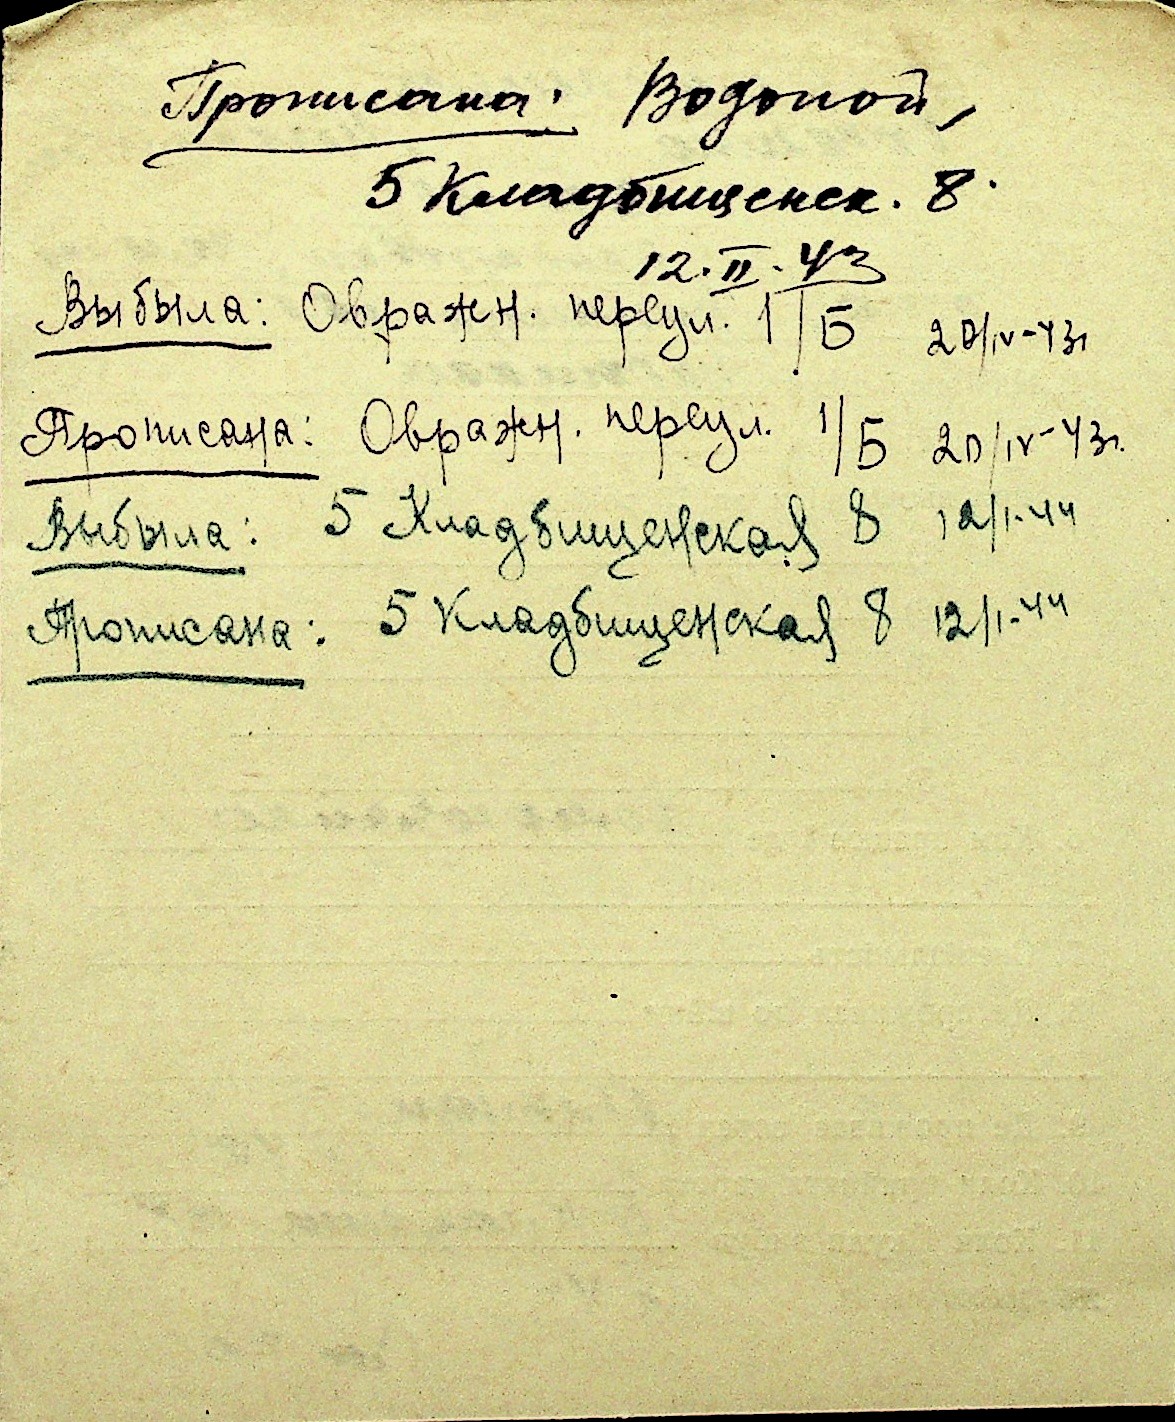 Прописана: Водопой,
5 Кладбищенск. 8.
12.II.43
Выбыла: Овражн. переул. 1/Б 20/IV-43г
Прописана: Овражн. переул. 1/Б 20/IV-43г.
Выбыла: 5 Кладбищенская 8 12/I-44
Прописана: 5 Кладбищенская 8 12/I-44